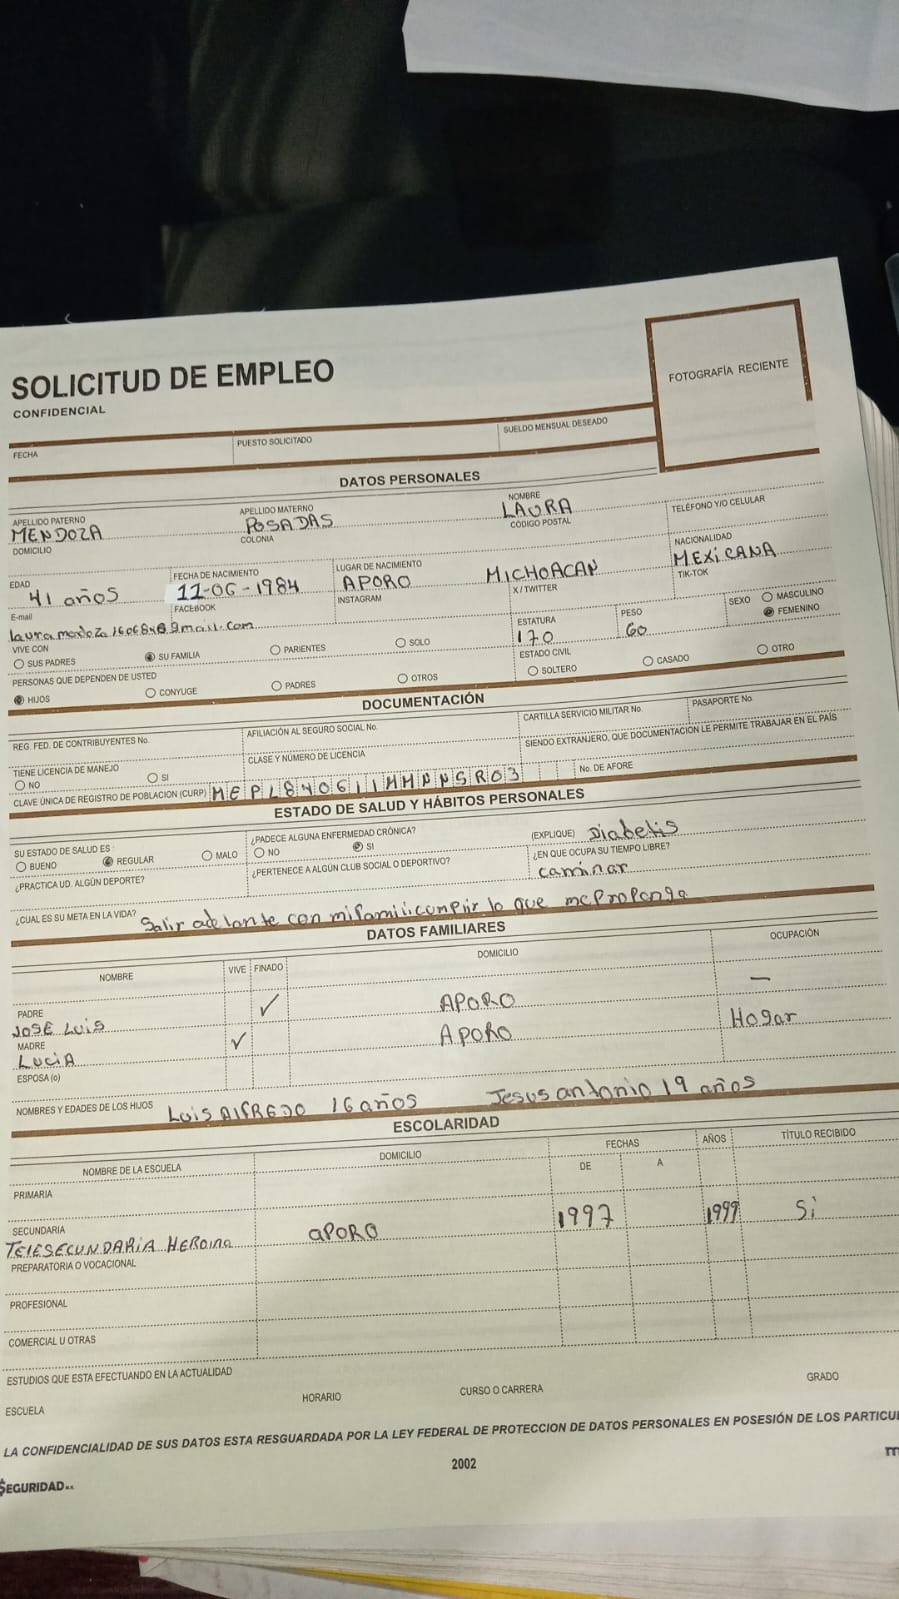 SOLICITUD DE EMPLEO
CONFIDENCIAL
FOTOGRAFÍA RECIENTE
FECHA PUESTO SOLICITADO SUELDO MENSUAL DESEADO
DATOS PERSONALES
APELLIDO PATERNO APELLIDO MATERNO NOMBRE TELÉFONO Y/O CELULAR
MENDOZA POSADAS LAURA
DOMICILIO COLONIA CÓDIGO POSTAL NACIONALIDAD
MEXICANA
EDAD FECHA DE NACIMIENTO LUGAR DE NACIMIENTO
41 años 11-06-1984 APORO MICHOACAN
E-mail FACEBOOK INSTAGRAM X / TWITTER TIK-TOK
ESTATURA PESO SEXO MASCULINO
170 60 FEMENINO
VIVE CON SUS PADRES SU FAMILIA PARIENTES SOLO
ESTADO CIVIL SOLTERO CASADO OTRO
PERSONAS QUE DEPENDEN DE USTED
HIJOS CONYUGE PADRES OTROS
DOCUMENTACIÓN
REG. FED. DE CONTRIBUYENTES No. AFILIACIÓN AL SEGURO SOCIAL No. CARTILLA SERVICIO MILITAR No. PASAPORTE No.
TIENE LICENCIA DE MANEJO CLASE Y NÚMERO DE LICENCIA SIENDO EXTRANJERO, QUE DOCUMENTACIÓN LE PERMITE TRABAJAR EN EL PAÍS
NO SI
CLAVE ÚNICA DE REGISTRO DE POBLACIÓN (CURP) MEPL840611MMNNSR03 No. DE AFORE
ESTADO DE SALUD Y HÁBITOS PERSONALES
SU ESTADO DE SALUD ES : ¿PADECE ALGUNA ENFERMEDAD CRÓNICA? (EXPLIQUE) Diabetis
BUENO REGULAR MALO NO SI
¿PRACTICA UD. ALGÚN DEPORTE? ¿PERTENECE A ALGÚN CLUB SOCIAL O DEPORTIVO? ¿EN QUE OCUPA SU TIEMPO LIBRE?
caminar
¿CUAL ES SU META EN LA VIDA? Salir adelante con mi lo que me proponga
DATOS FAMILIARES
NOMBRE VIVE FINADO DOMICILIO OCUPACIÓN
PADRE
JOSE LUIS ✓ APORO —
MADRE
LUCIA ✓ APORO Hogar
ESPOSA (o)
NOMBRES Y EDADES DE LOS HIJOS LUIS ALFREDO 16 años Jesus antonio 19 años
ESCOLARIDAD
NOMBRE DE LA ESCUELA DOMICILIO FECHAS AÑOS TÍTULO RECIBIDO
DE A
PRIMARIA
SECUNDARIA
TELESECUNDARIA HEROINA APORO 1997 1999 Si
PREPARATORIA O VOCACIONAL
PROFESIONAL
COMERCIAL U OTRAS
ESTUDIOS QUE ESTA EFECTUANDO EN LA ACTUALIDAD
ESCUELA HORARIO CURSO O CARRERA GRADO
LA CONFIDENCIALIDAD DE SUS DATOS ESTA RESGUARDADA POR LA LEY FEDERAL DE PROTECCION DE DATOS PERSONALES EN POSESIÓN DE LOS
2002
SEGURIDAD